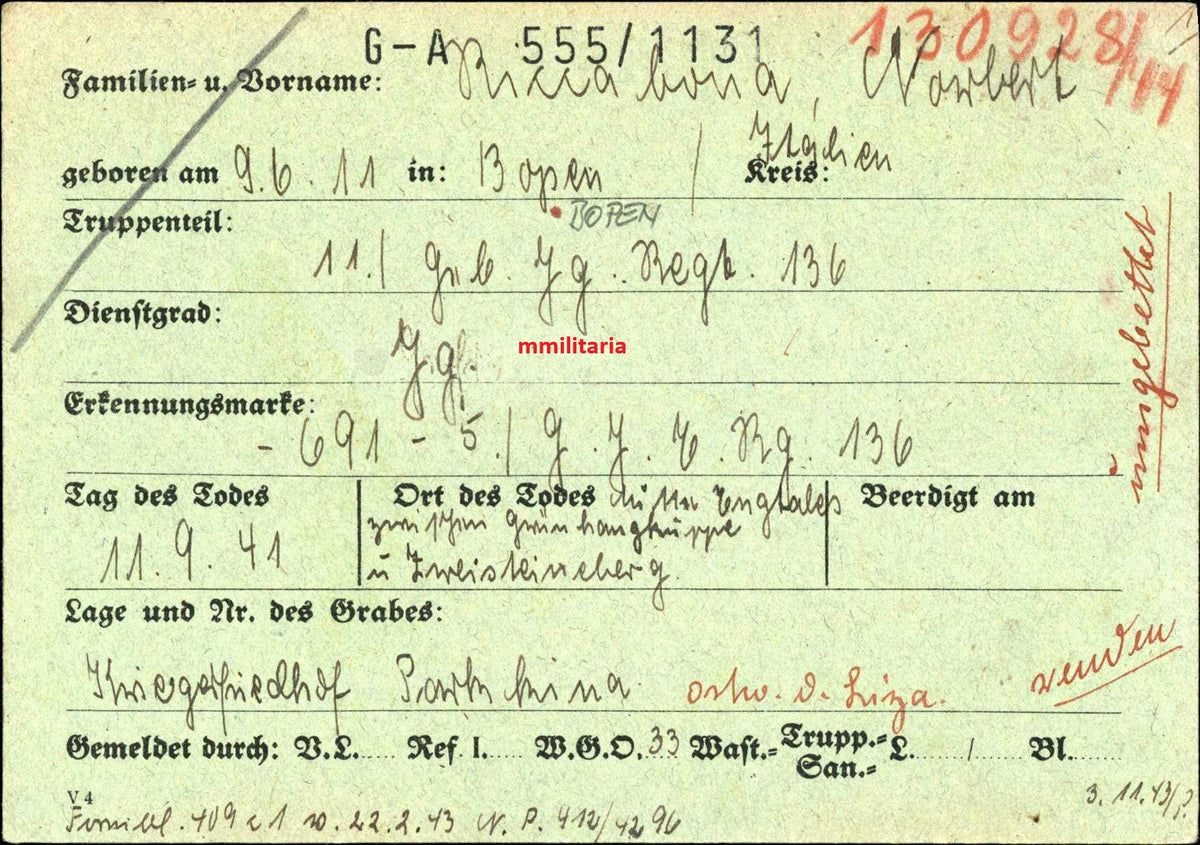 G-A 555/1131
130928/44
Familien- u. Vorname: Riccabona, Norbert
geboren am 9.6.11 in: Bozen / Kreis: Italien
BOZEN
Truppenteil:
11./ Geb. Jg. Regt. 136
Dienstgrad:
mmilitaria
Erkennungsmarke:
- 691 - 5./ G. J. E. Rg. 136
umgebettet
Tag des Todes
11. 9. 41
Ort des Todes Mitte Engtales
zwischen Grünhangkuppe
u Zweisteineberg.
Beerdigt am
Lage und Nr. des Grabes:
Kriegerfriedhof Parkkina ostw. d. Liza.
wenden
Gemeldet durch: V.L. Ref I. W.G.O. 33 Wast.= Trupp.=San.= L. / Bl.
V 4
3. 11. 43/
409 c 1 v. 22. 2. 43 N. P. 412/4296